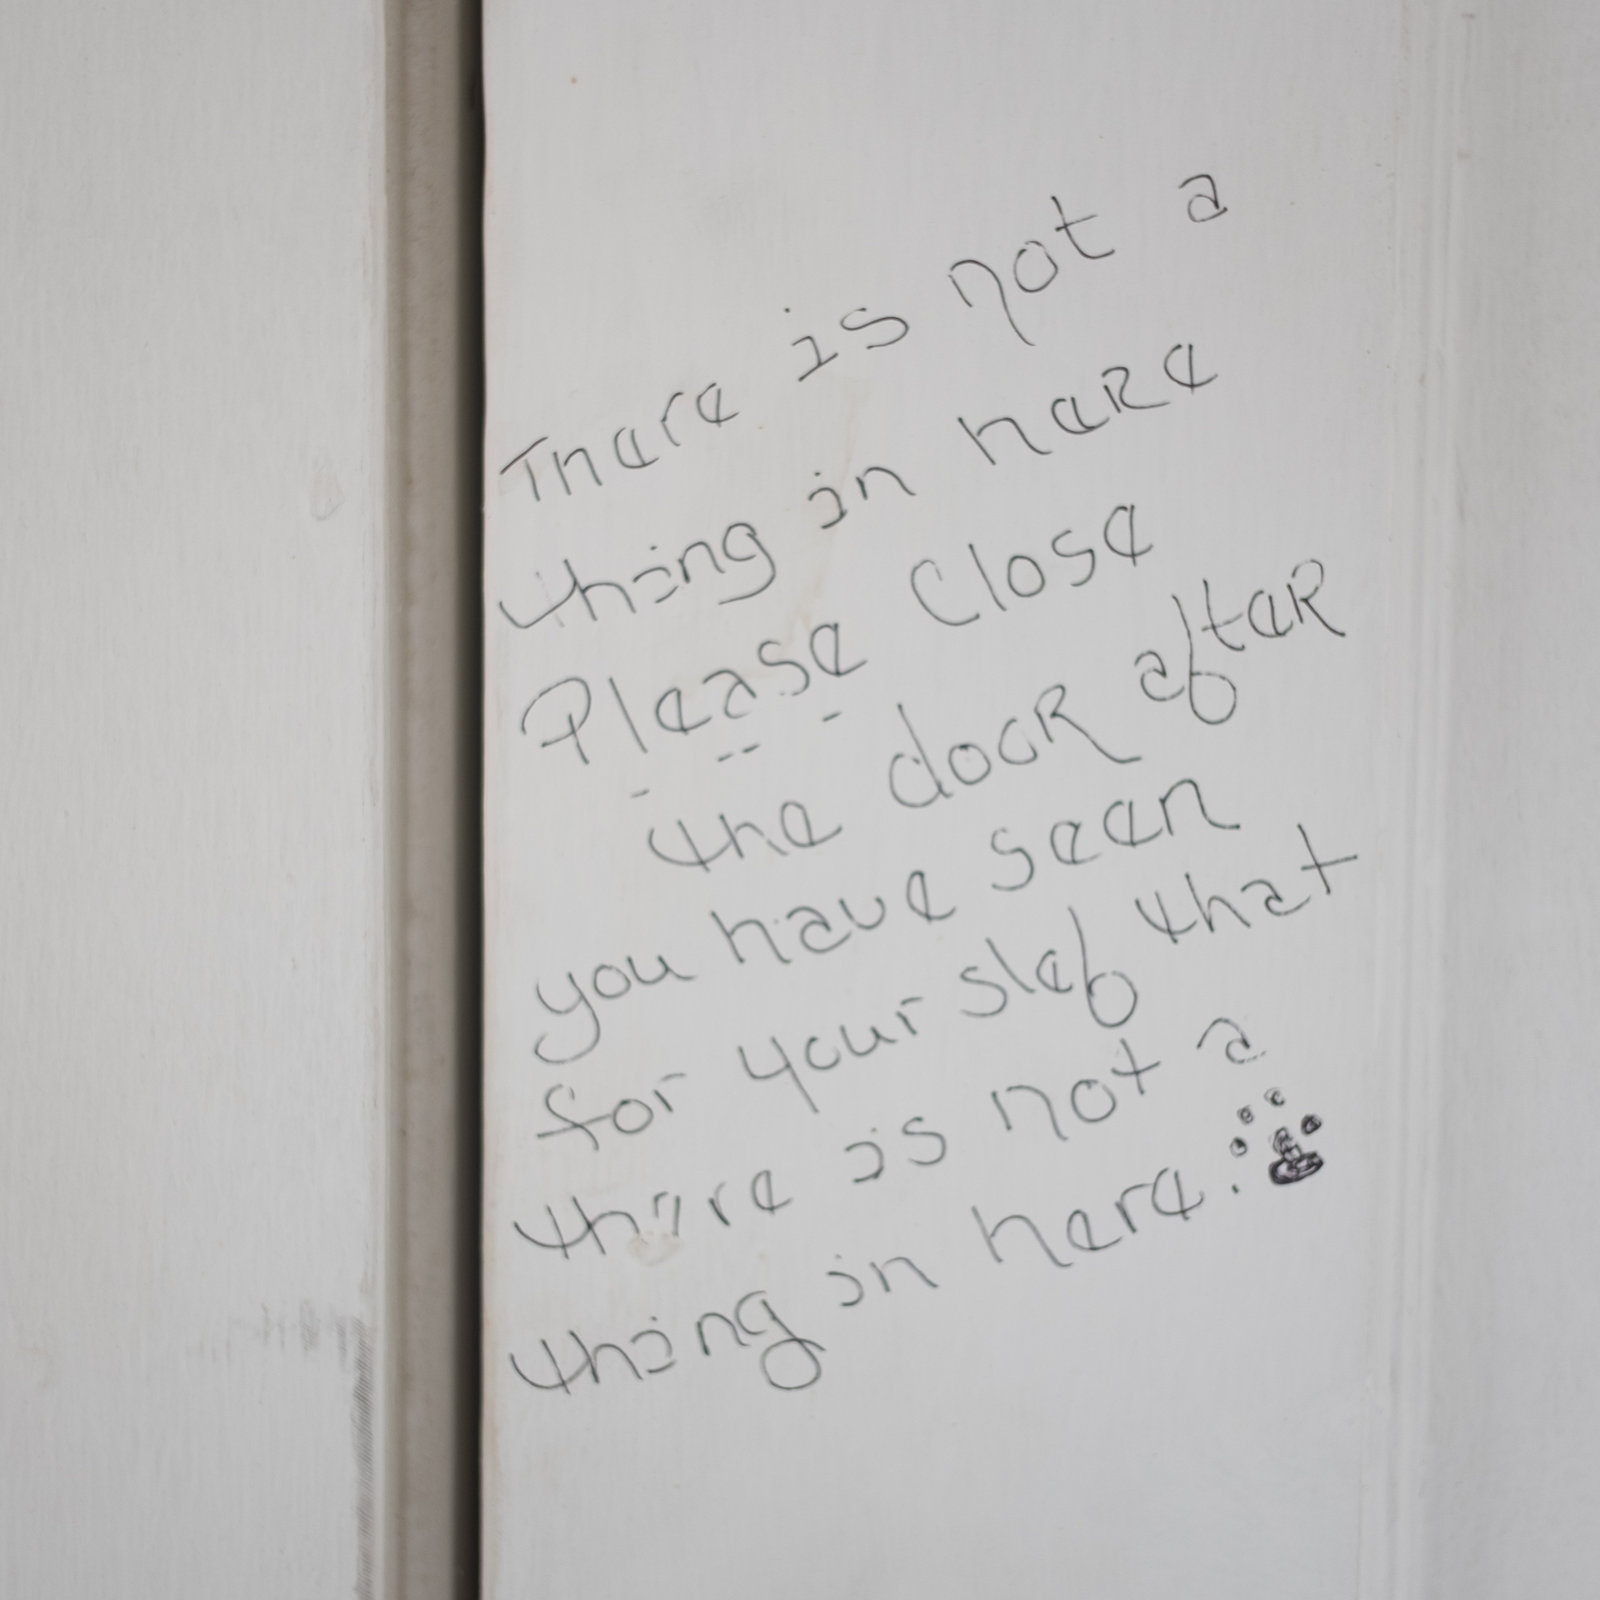 There is not a
thing in heRe
Please Close
the dooR afteR
you have seen
for your slef that
there is not a
thing in here.